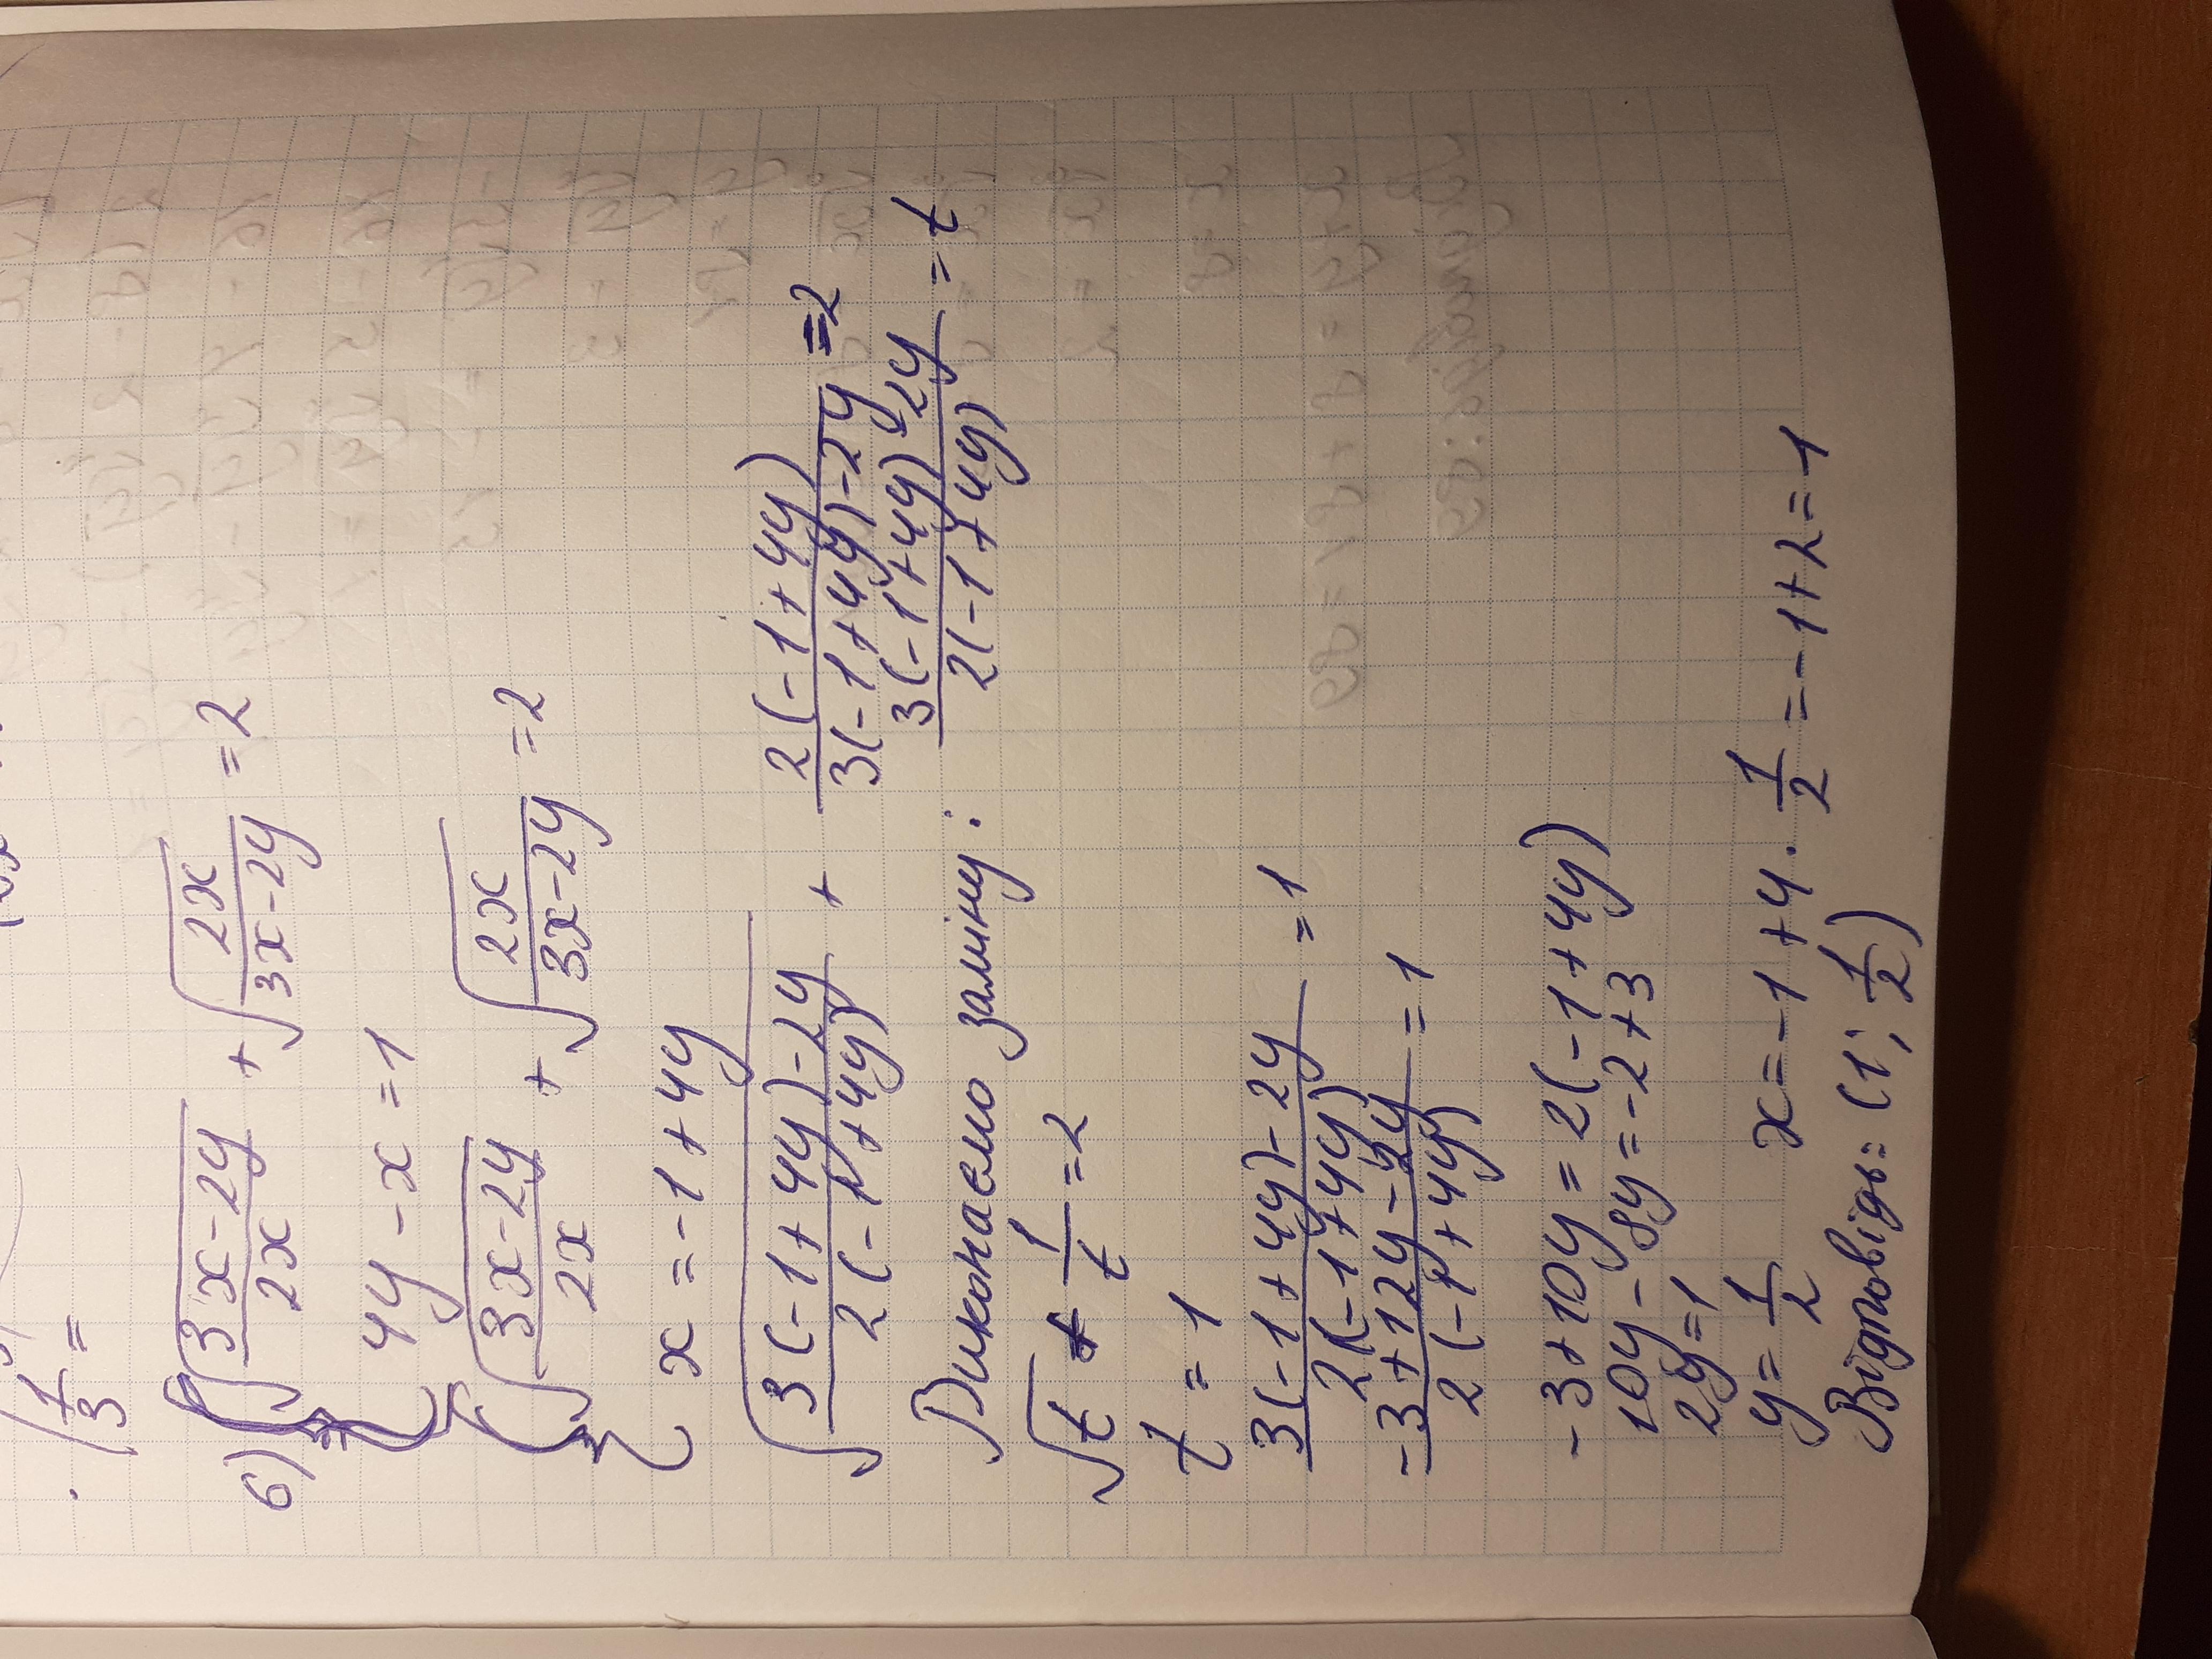 · (1/3 =
6) { √((3x-2y)/(2x)) + √((2x)/(3x-2y)) = 2
4y - x = 1
{ √((3x-2y)/(2x)) + √((2x)/(3x-2y)) = 2
x = -1 + 4y
√((3(-1+4y)-2y)/(2(-1+4y))) + (2(-1+4y))/(3(-1+4y)-2y) = 2
Виконаємо заміну: (3(-1+4y)-2y)/(2(-1+4y)) = t
√t + 1/t = 2
t = 1
(3(-1+4y)-2y)/(2(-1+4y)) = 1
(-3+12y-2y)/(2(-1+4y)) = 1
-3+10y = 2(-1+4y)
10y-8y = -2+3
2y = 1
y = 1/2 x = -1+4·1/2 = -1+2 = 1
Відповідь: (1; 1/2)